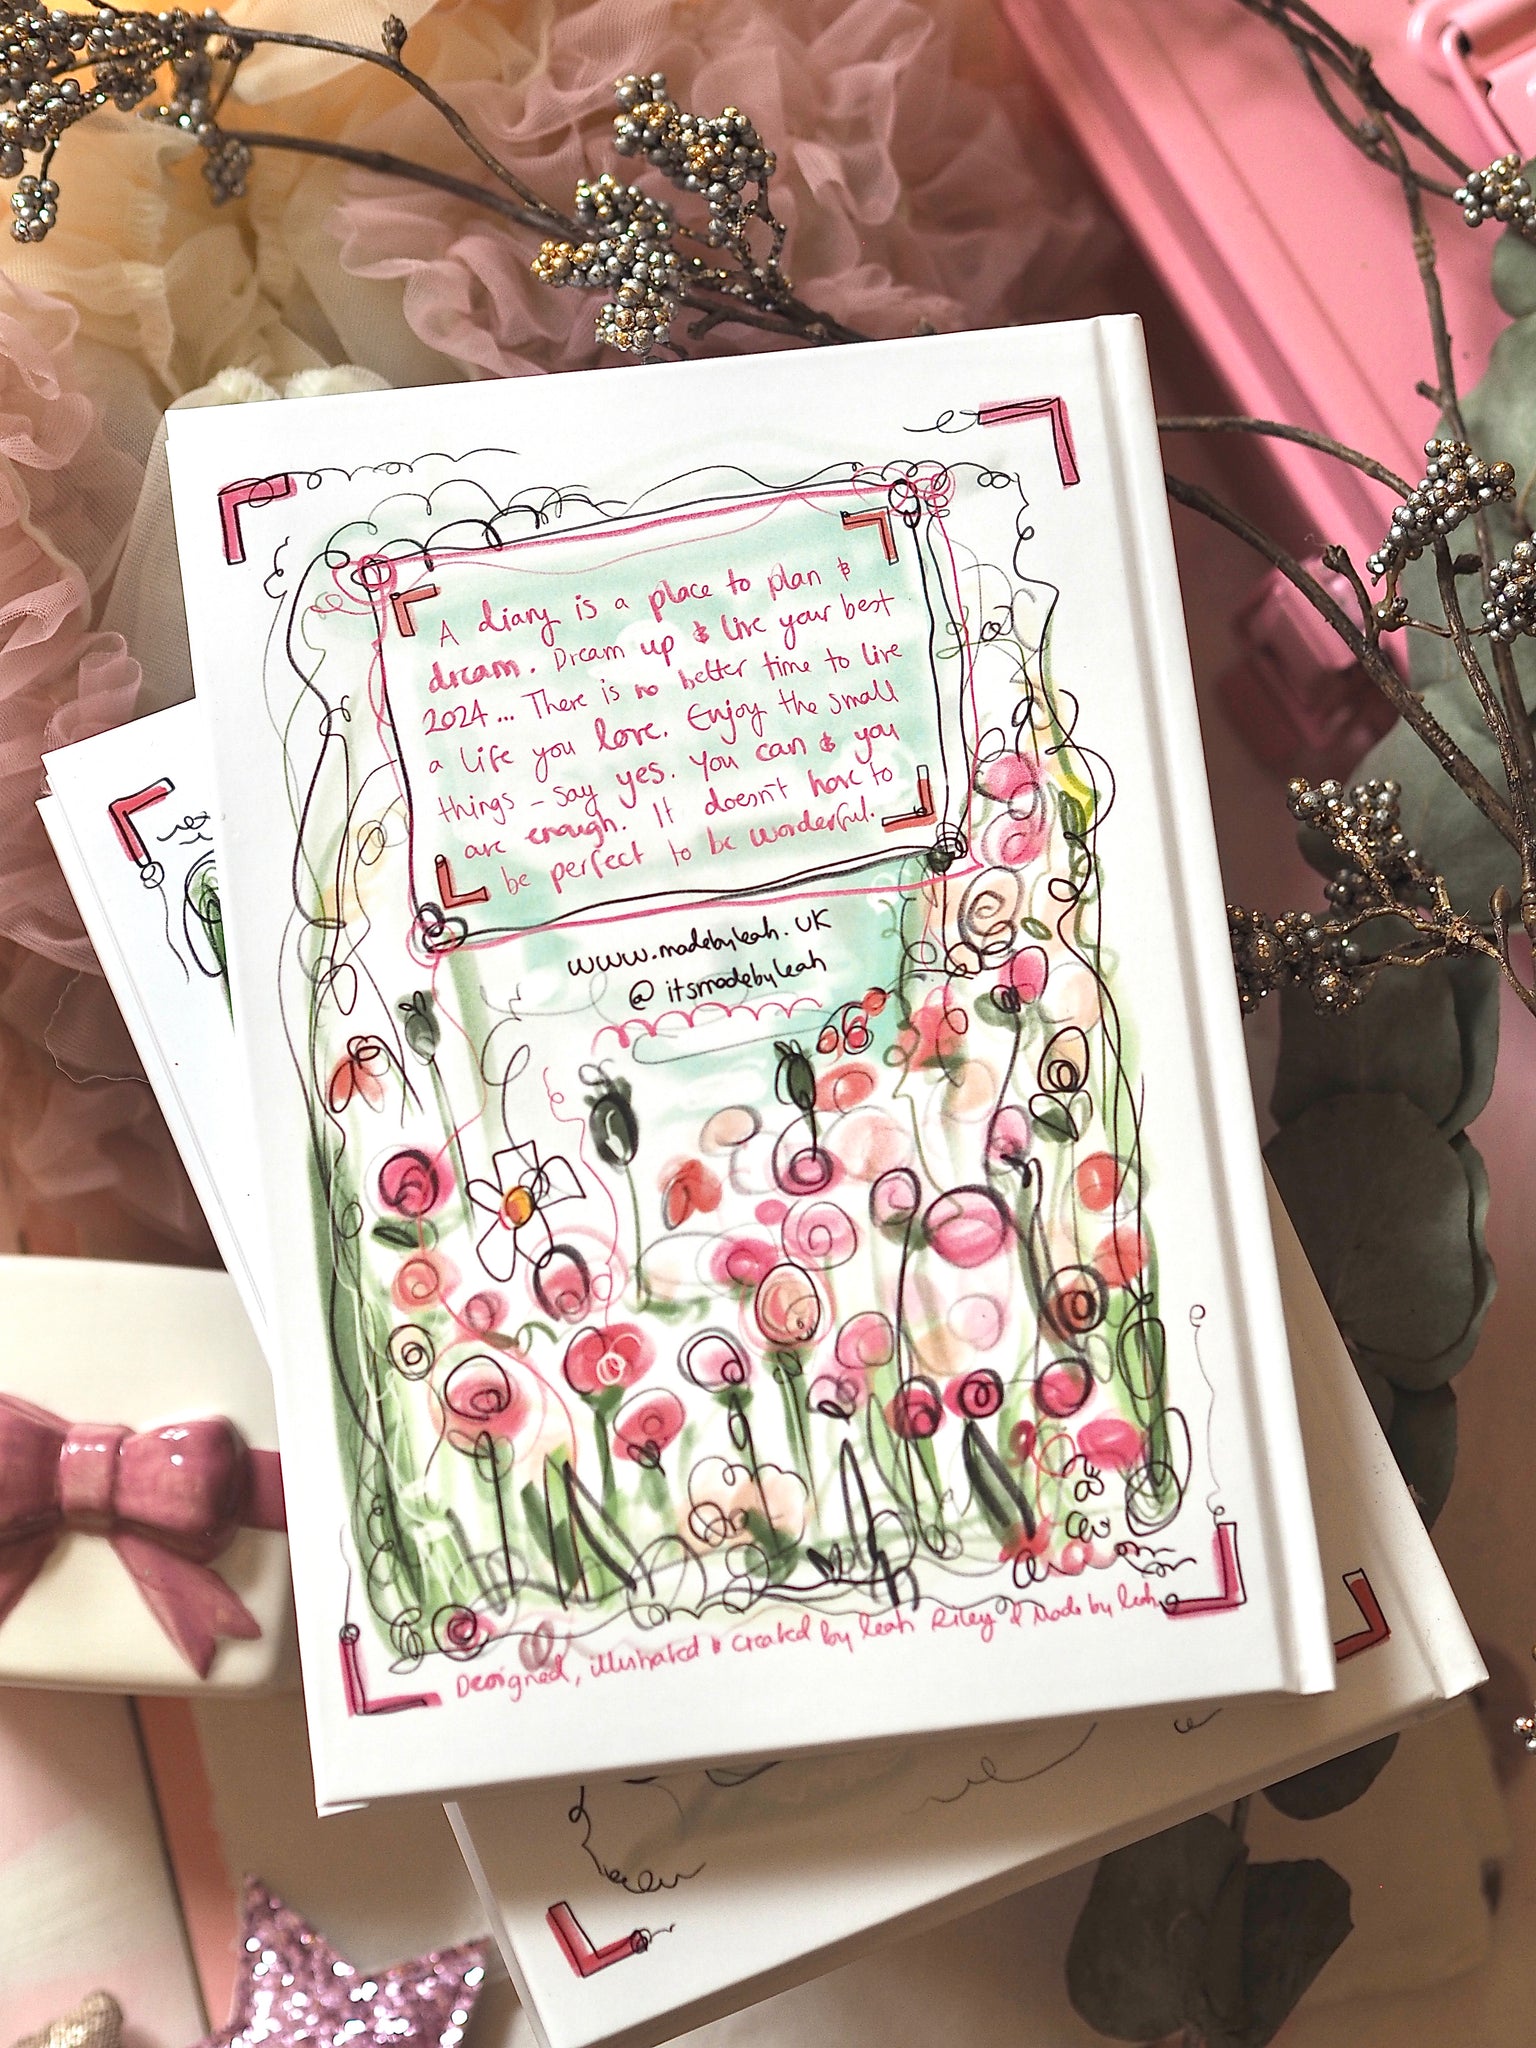 A diary is a place to plan &
dream. Dream up & live your best
2024... There is no better time to live
a life you love. Enjoy the small
things - say yes. You can & you
are enough. It doesn't have to
be perfect to be wonderful.
www.madebyleah.UK
@itsmadebyleah
Designed, illustrated & created by Leah Riley @ Made by Leah